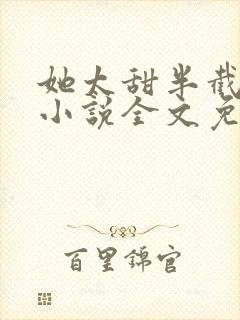 她太甜半截
小说全文免
百里锦官